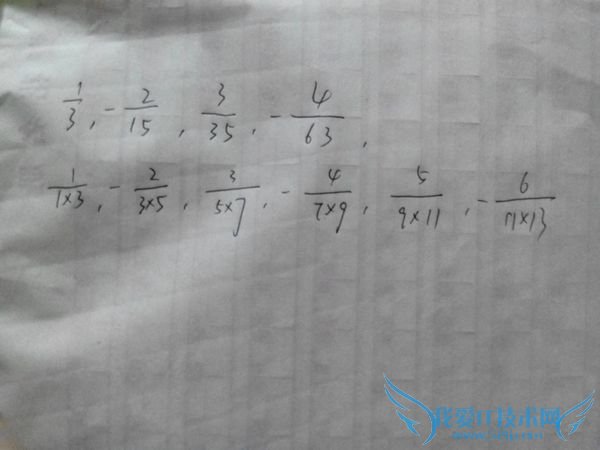 1/3, -2/15, 3/35, -4/63,
1/1×3, -2/3×5, 3/5×7, -4/7×9, 5/9×11, -6/11×13
我爱IT技术网